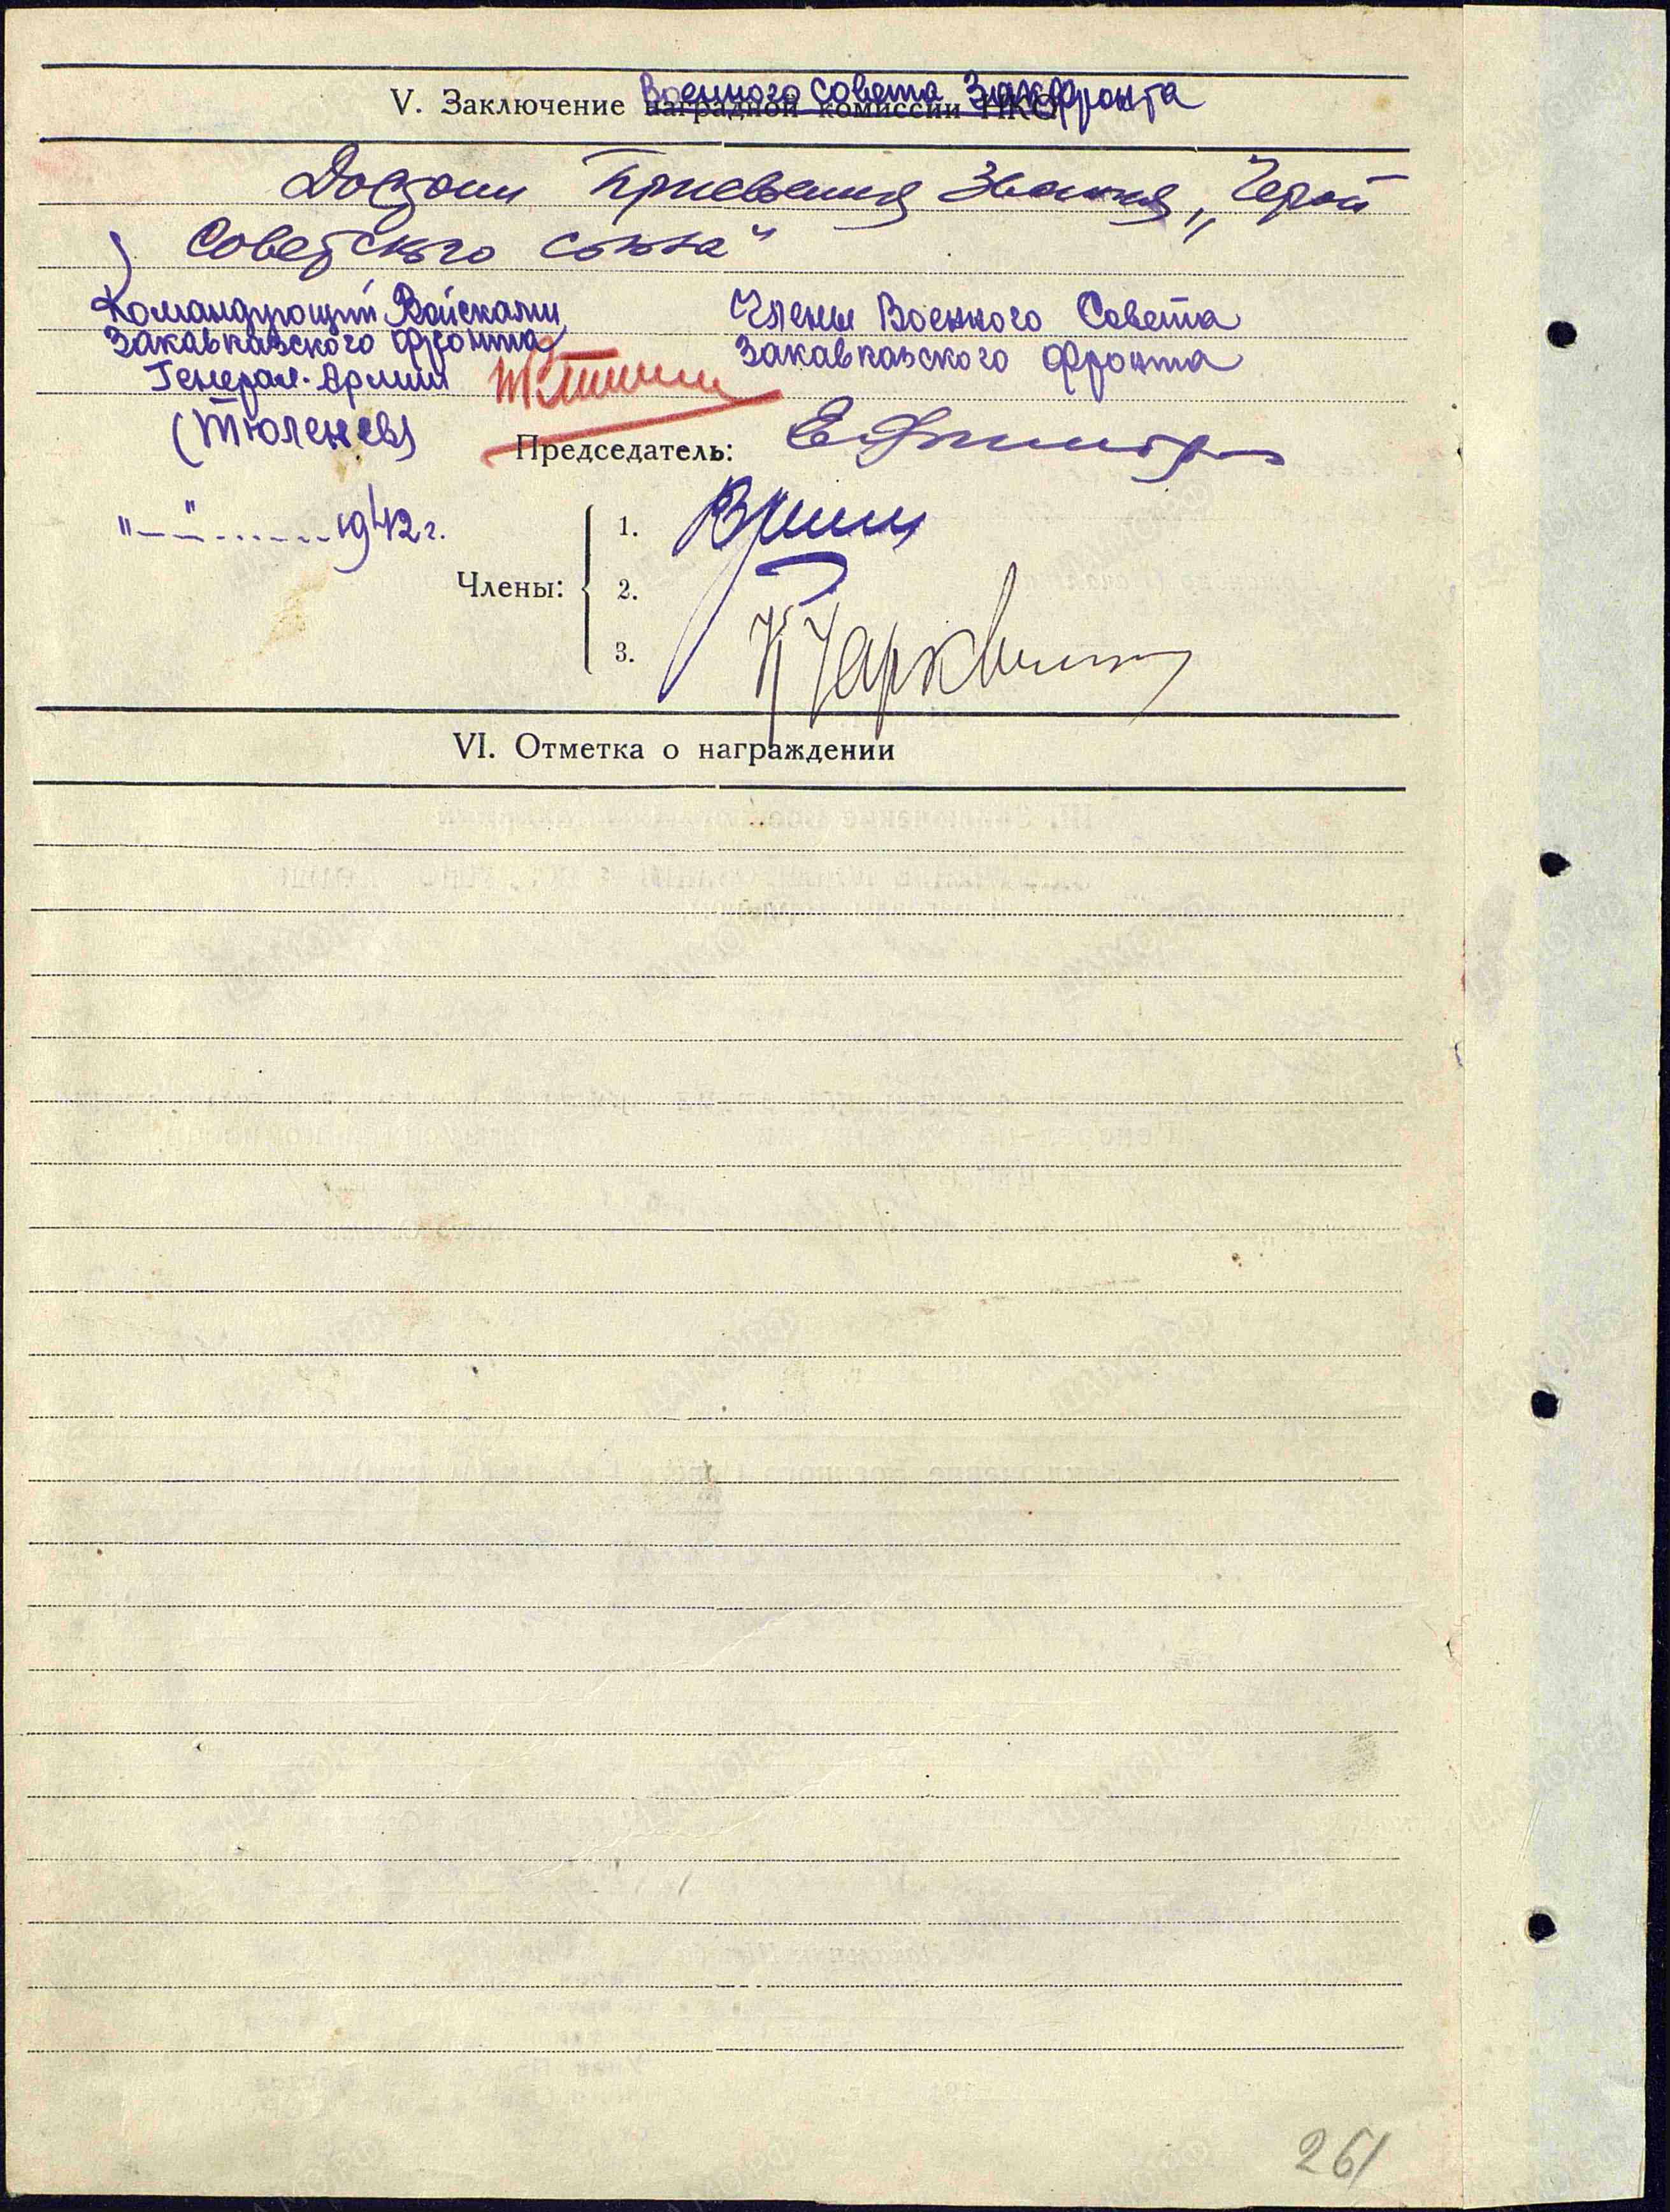 V. Заключение наградной комиссии НКО Военного Совета Закфронта
Достоин Присвоения Звания „Герой
Советского Союза“
Командующий Войсками
Закавказского Фронта
Генерал-Армии
(Тюленев)
Члены Военного Совета
Закавказского Фронта
Председатель:
"—" 1942 г.
Члены:
1.
2.
3.
VI. Отметка о награждении
261